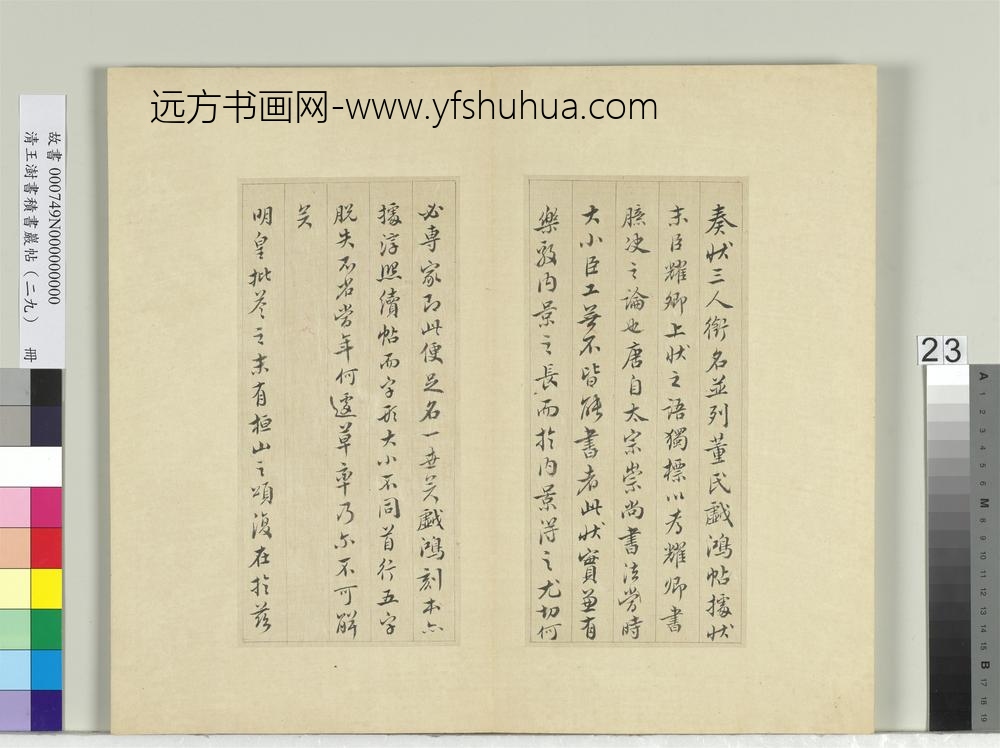 远方书画网-www.yfshuhua.com
奏状三人衔名並列董氏戯鴻帖據状
末臣耀卿上状之語獨標以為耀卿書
臆决之論也唐自太宗崇尚書法當時
大小臣工無不皆能書者此状實兼有
樂毅内景之長而於内景得之尤切何
必専家即此便足名一世矣戯鴻刻本亦
據淳熙續帖而字形大小不同首行五字
脱失不省當年何遽草率乃尔不可解
矣
明皇批荅之末有桓山之頌復在於兹
故書 000749N000000000
清王澍書積書巖帖(二九) 冊
23
A 1 2 3 4 5 6 M 8 9 10 11 12 13 14 15 B 17 18 19